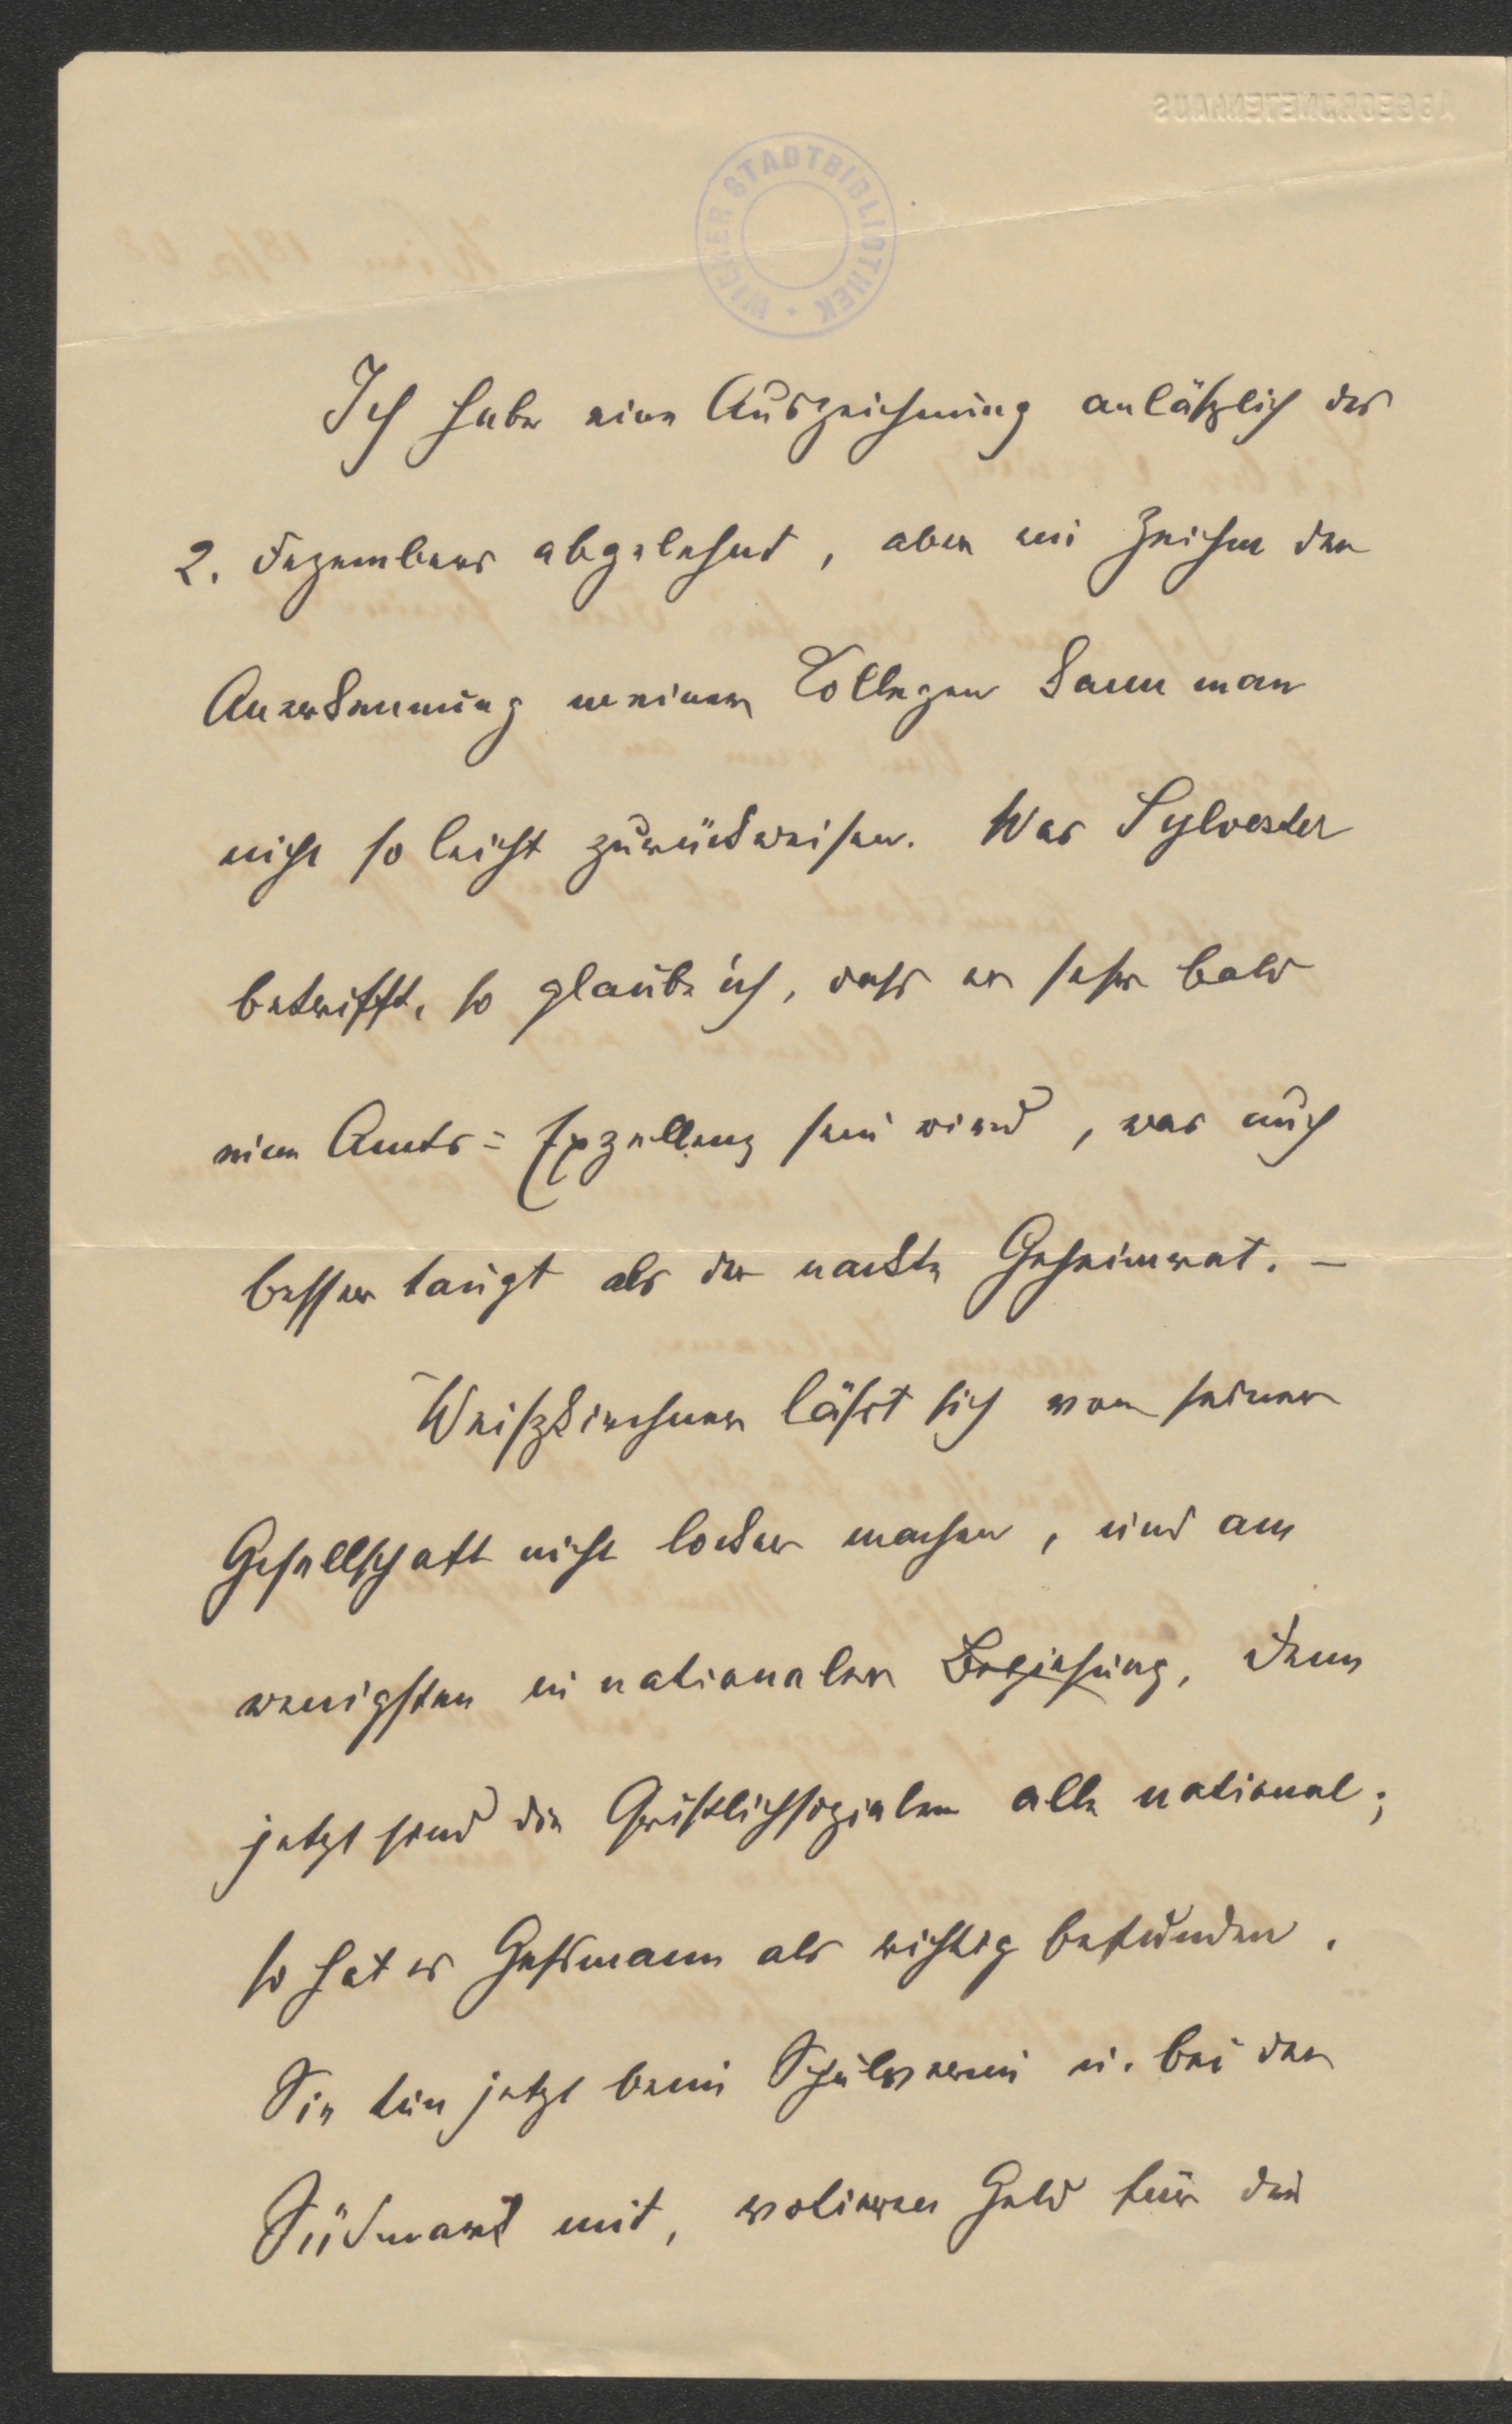 ABGEORDNETENHAUS
WIENER STADTBIBLIOTHEK
Ich habe eine Auszeichnung anläßlich des
2. Dezembers abgelehnt, aber ein Zeichen der
Anerkennung meiner Collegen kann man
nicht so leicht zurückweisen. Was Sylvester
betrifft, so glaube ich, dass er sehr bald
eine Amts=Exzellenz sein wird, was auch
besser taugt als der nackte Geheimrat. –
Weiszkirchner lässt sich von seiner
Gesellschaft nicht locker machen, und am
wenigsten in nationaler Beziehung, denn
jetzt sind die Christlichsozialen alle national;
so hat es Gessmann als richtig befunden.
Sie tun jetzt beim Schulverein u. bei der
Südmark mit, votieren Geld für die